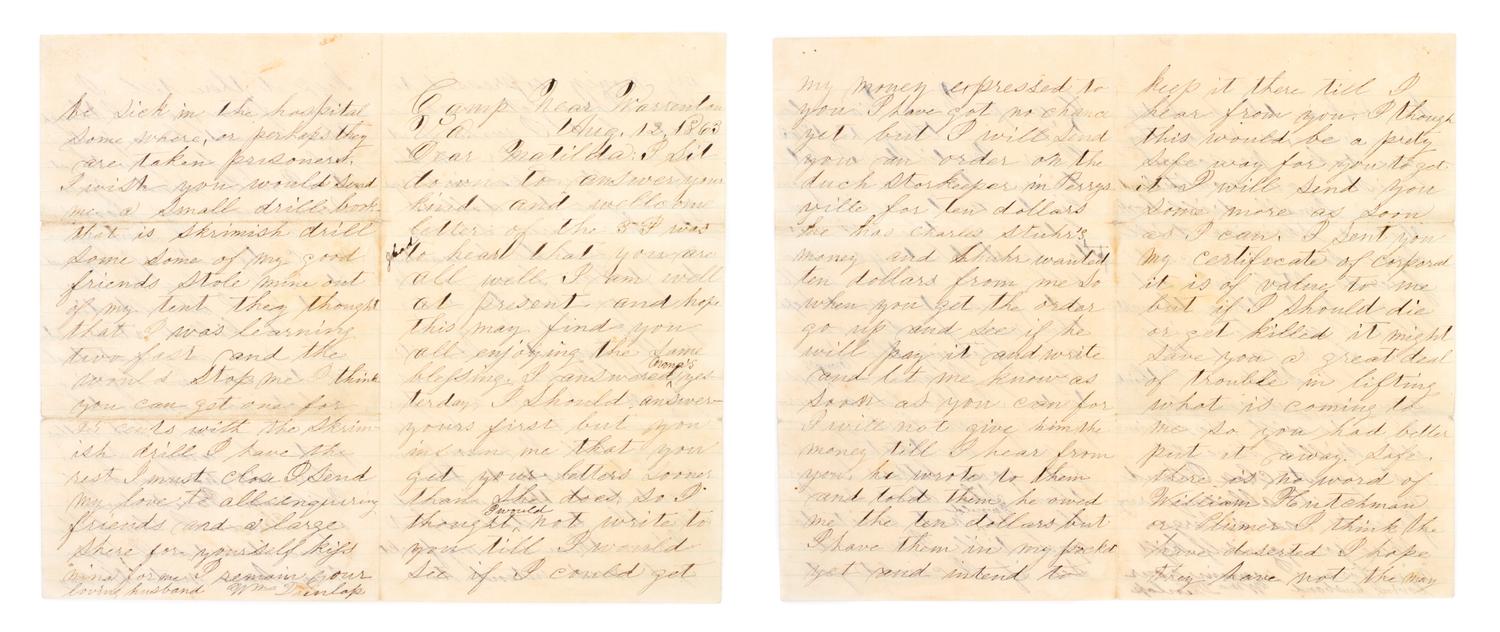 Camp Near Warrenton
Va. Aug. 12, 1863
Dear Matilda. I Sit
down to answer your
kind and wellcome
letter of the 5 I was
glad to heart that you are
all well. I am well
at present and hope
this may find you
all enjoying the same
blessing. I answored Mona's yes-
terday I should answer
yours first but you
inform me that you
get your letters sooner
than She does so I
thought I would not write to
you till I would
see if I could get
my money expressed to
you I have got no chance
yet but I will send
you an order on the
duch storkeeper in Perrys
ville for ten dollars
he has Charles Stuhr's
money and Shuhr wanted
ten dollars from me so
when you get the order
go up and see if he
will pay it and write
and let me know as
soon as you can for
I will not give him the
money till I hear from
you. he wrote to them
and told them he owed
me the ten dollars but
I have them in my pocket
yet and intend to
keep it there till I
hear from you. I though
this would be a prity
safe way for you to get
it I will send you
some more as soon
as I can. I sent you
my certificate of corporal
it is of value to me
but if I should die
or get killed it might
save you a great deal
of trouble in lifting
what is coming to
me so you had better
put it away safe.
there is no word of
William Hutchman
or Plumer I think the
have deserted I hope
they have not the may
be sick in the hospital
some where, or perhaps they
are taken prisoners.
I wish you would send
me a small drill book
that is skrimish drill
some some of my good
friends stole mine out
of my tent they thought
that I was learning
two fast and the
would stop me I think
you can get one for
25 cents with the skrim-
ish drill I have the
rest I must close I send
my love to all enquiring
friends and a large
shere for yourself kiss
mina for me I remain your
loving husband Wm Dunlap